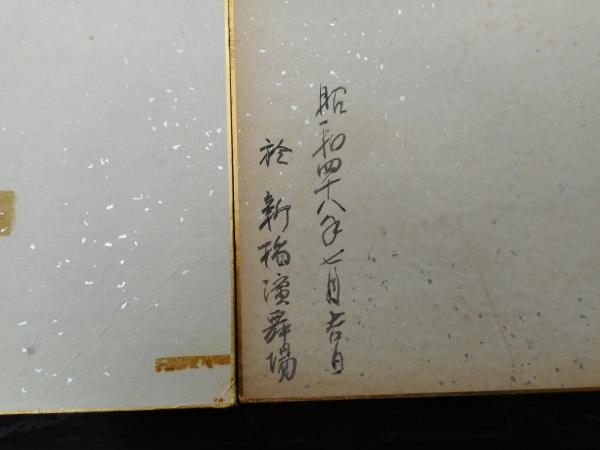 昭和四十八年七月吉日
於 新橋演舞場